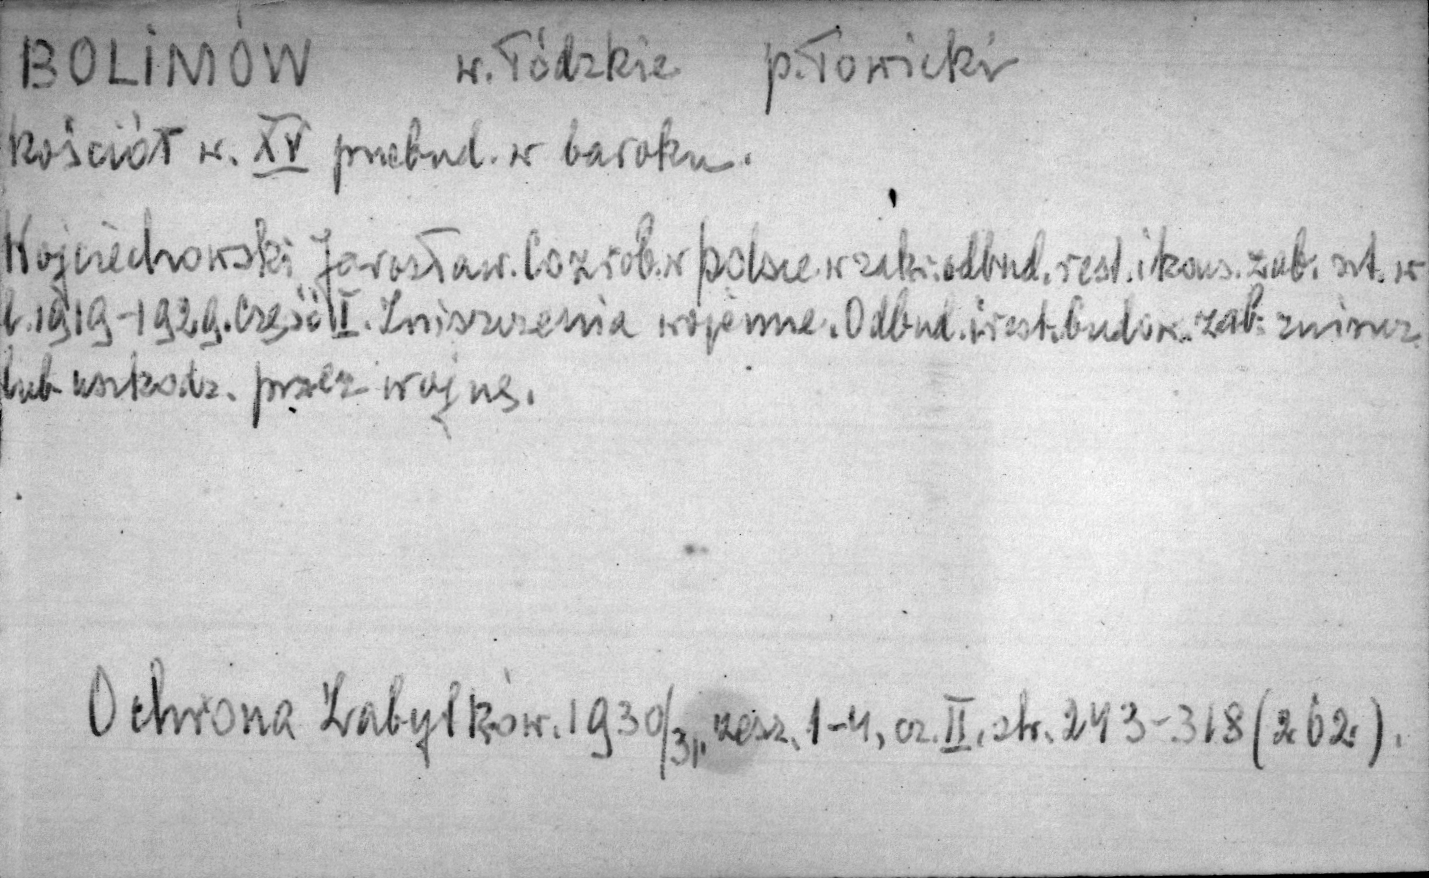 BOLIMÓW w. Łódzkie p. Łowicki
Kościół w. XV przebud. w baroku.
Wojciechowski Jarosław. Co zrob. w polsce w zakr. odbud. rest. i kons. zab. szt. w
l. 1919-1929. Część I. Zniszczenia wojenne. Odbud. i rest. budow. zab. zniszcz
lub uszkodz. przez wojnę.
Ochrona Zabytków. 1930/31, zesz. 1-4, cz. II, str. 243-318 (262).